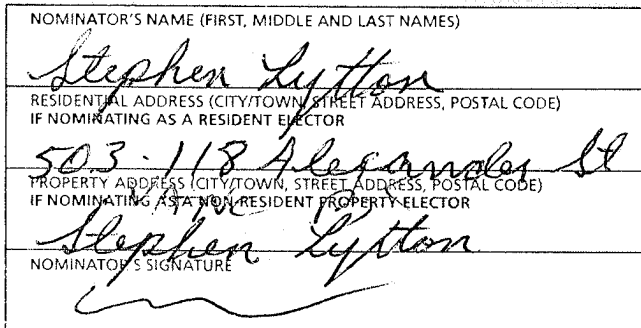 NOMINATOR'S NAME (FIRST, MIDDLE AND LAST NAMES)
Stephen Lytton
RESIDENTIAL ADDRESS (CITY/TOWN, STREET ADDRESS, POSTAL CODE)
IF NOMINATING AS A RESIDENT ELECTOR
503-118 Alexander St
PROPERTY ADDRESS (CITY/TOWN, STREET ADDRESS, POSTAL CODE)
IF NOMINATING AS A NON RESIDENT PROPERTY ELECTOR
Stephen Lytton
NOMINATOR'S SIGNATURE